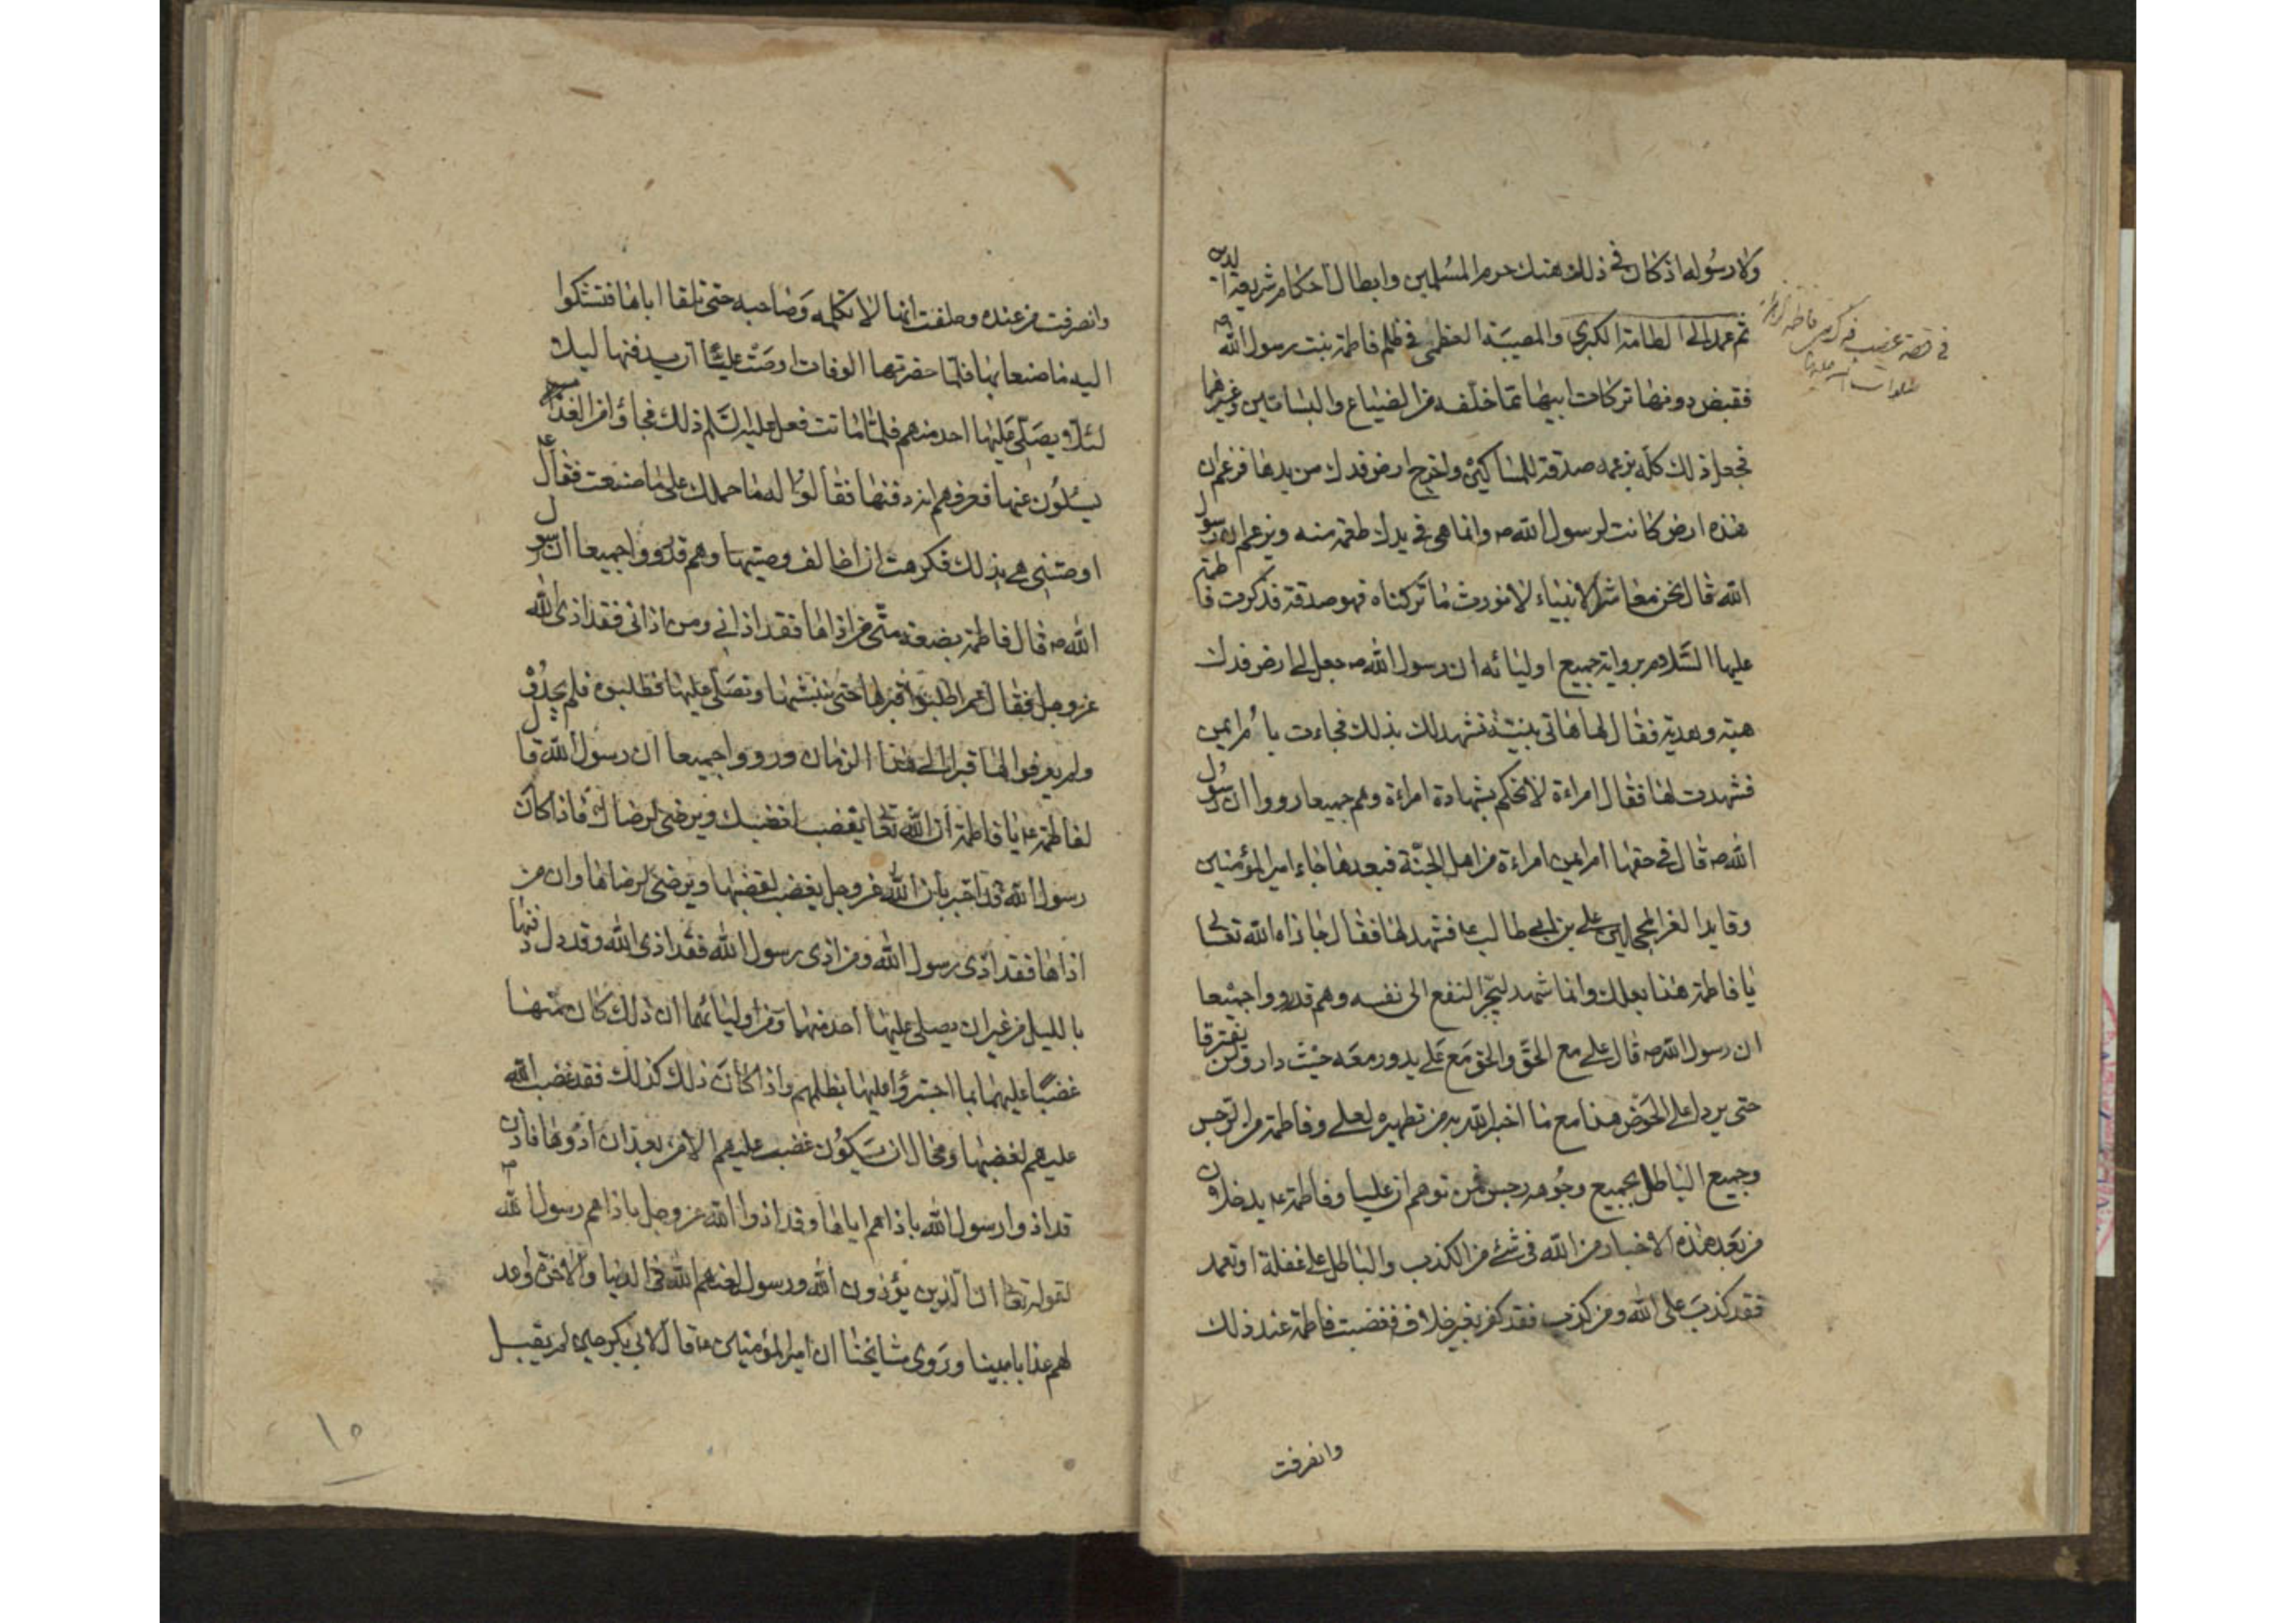 ولا رسوله اذ كان في ذلك هتك حرم المسلمين وابطال احكام شريعة
ثم عمد الى الطامة الكبرى والمصيبة العظمى في ظلم فاطمة بنت رسول الله ص
فقبض دونها تركات ابيها مما خلفه من الضياع والبساتين وغيرها
فجعل ذلك كله بزعمه صدقة للمساكين واخرج ارض فدك من يدها فزعم ان
هذه ارض كانت لرسول الله ص وانما هي في يدك طعمة منه وزعم ان رسول
الله قال نحن معاشر الانبياء لا نورث ما تركناه فهو صدقة فذكرت فاطمة
عليها السلام برواية جميع اوليائه ان رسول الله ص جعل لي ارض فدك
هبة وهدية فقال لها هاتي بنيتة تشهد لك بذلك فجاءت بام ايمن
فشهدت لها فقال امراءة لا نحكم بشهادة امراءة وهم جميعا رووا ان رسول
الله ص قال في حقها ام ايمن امراءة من اهل الجنة فبعدها جاء امير المؤمنين
وقايد الغر المحجلين علي بن ابي طالب ع فشهد لها فقال جازاه الله تعالى
يا فاطمة هذا بعلك وانما شهد ليجر النفع الى نفسه وهم قد رووا جميعا
ان رسول الله ص قال علي مع الحق والحق مع علي يدور معه حيث دار ولن يفترقا
حتى يردا على الحوض هذا مع ما اخبر الله به من تطهيره لعلي وفاطمة من الرجس
وجميع الباطل بجميع وجوهه رجس فمن توهم ان عليا وفاطمة ع يدخلان
من بعد هذه الاخبار من الله في شئ من الكذب والباطل على غفلة او تعمد
فقد كذب على الله ومن كذب فقد كفر بغير خلاف فغضبت فاطمة عند ذلك
وانصرفت
في قصة غصب فدك فاطمة
صلوات الله عليها
وانصرفت من عنده وحلفت انها لا تكلمه وصاحبه حتى تلقا اباها فتشكوا
اليه ما صنعا بها فلما حضرتها الوفات اوصت عليا ان يدفنها ليلا
لئلا يصلى عليها احد منهم فلما ماتت فعل عليه السلم ذلك فجاؤا من الغد
يسئلون عنها فعرفهم انه دفنها فقالوا له ما حملك على ما صنعت فقال ع
اوصتني هي بذلك فكرهت ان اخالف وصيتها وهم قد رووا جميعا ان رسول
الله ص قال فاطمة بضعة مني من اذاها فقد اذاني ومن اذاني فقد اذى الله
عز وجل فقال عمر اطلبوا قبرها حتى ننبشها ونصلي عليها فطلبوه فلم يجدوه
ولم يعرفوا لها قبرا الى هذا الزمان ورووا جميعا ان رسول الله قال
لفاطمة ع يا فاطمة ان الله تعا يغضب لغضبك ويرضى لرضاك فاذا كان
رسول الله قد اخبر بان الله عز وجل يغضب لغضبها ويرضى لرضاها وان من
اذاها فقد اذى رسول الله ومن اذى رسول الله فقد اذى الله وقد دل دفنها
بالليل من غير ان يصلى عليها احد منهما ومن اوليائهما ان ذلك كان منها
غضبا عليهما بما اجترؤا عليها بظلمهم واذا كان ذلك كذلك فقد غضب الله
عليهم لغضبها ومحال ان يكون غضب عليهم الا من بعد ان اذوها فاذن
قد اذوا رسول الله باذاهم اياها وقد اذوا الله عز وجل باذاهم رسول الله
لقوله تعا ان الذين يؤذون الله ورسوله لعنهم الله في الدنيا والاخرة واعد
لهم عذابا مهينا وروى مشايخنا ان امير المؤمنين ع قال لابي بكر حين لم يقبل
١٥